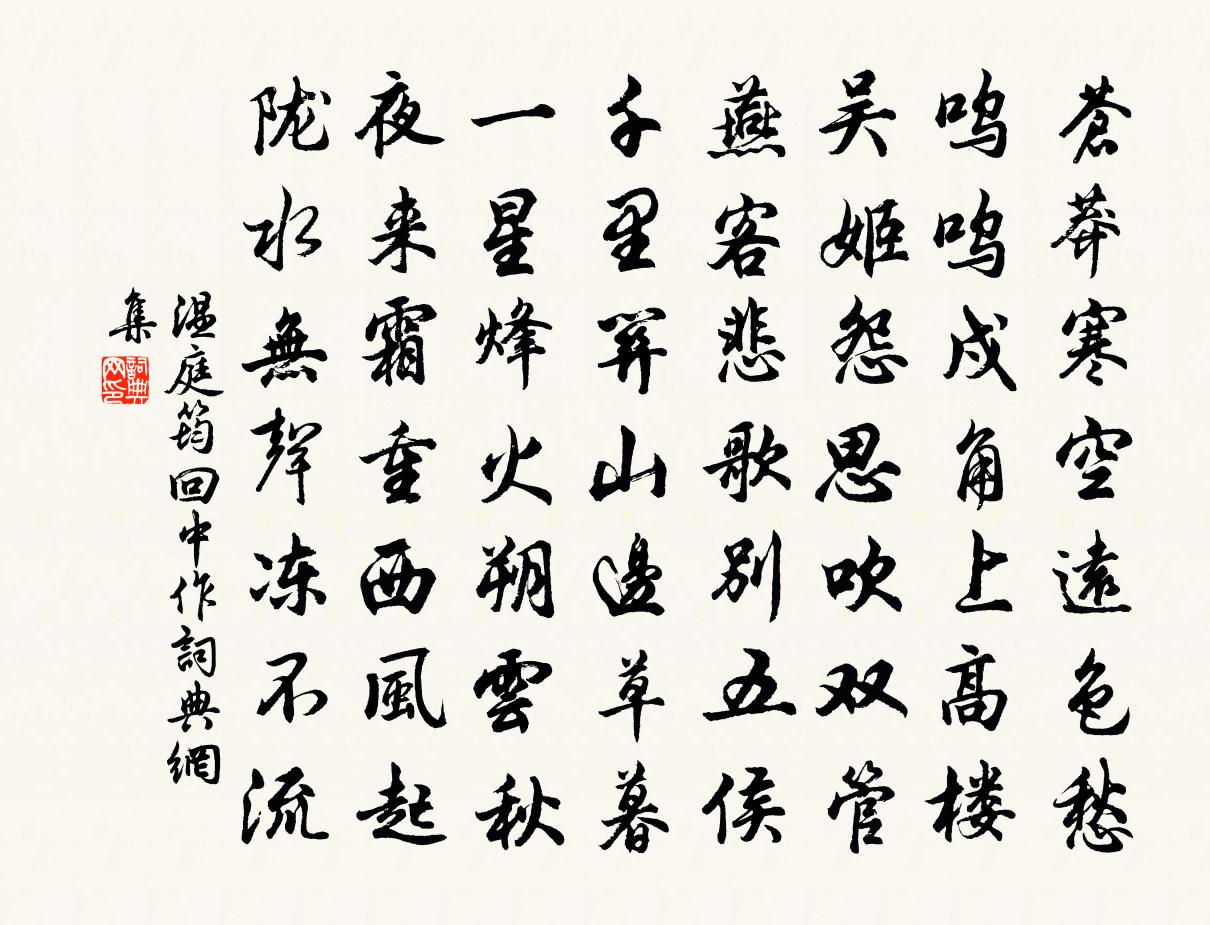 蒼莽寒空遠色愁
鸣鸣戍角上高楼
吴姬怨思吹双管
燕客悲歌别五侯
千里關山邊草暮
一星烽火朔雲秋
夜来霜重西風起
陇水無聲冻不流
温庭筠回中作詞典網
集
詞典网印